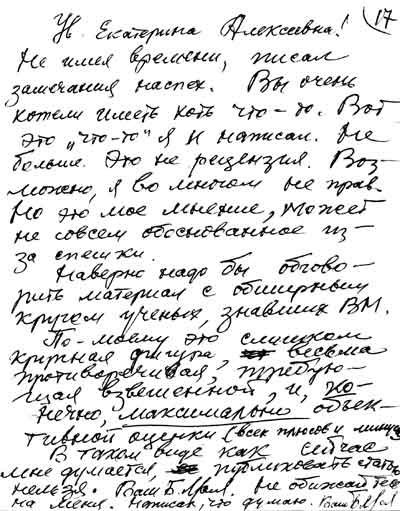 17
Ув. Екатерина Алексеевна!
Не имея времени, писал
замечания наспех. Вы очень
хотели иметь хоть что-то. Вот
это „что-то" я и написал. Не
больше. Это не рецензия. Воз-
можно, я во многом не прав.
Но это мое мнение, может
не совсем обоснованное из-
за спешки.
Наверно надо бы обгово-
рить материал с обширным
кругом ученых, знавших ВМ.
По-моему это слишком
крупная фигура, весьма
противоречивая, требую-
щая взвешенной, и, ко-
нечно, максимально объек-
тивной оценки (всех плюсов и минусов
В таком виде как сейчас
мне думается, публиковать статью
нельзя. Ваш Б. Не обижайтесь
на меня. Написал, что думаю. Ваш Б.